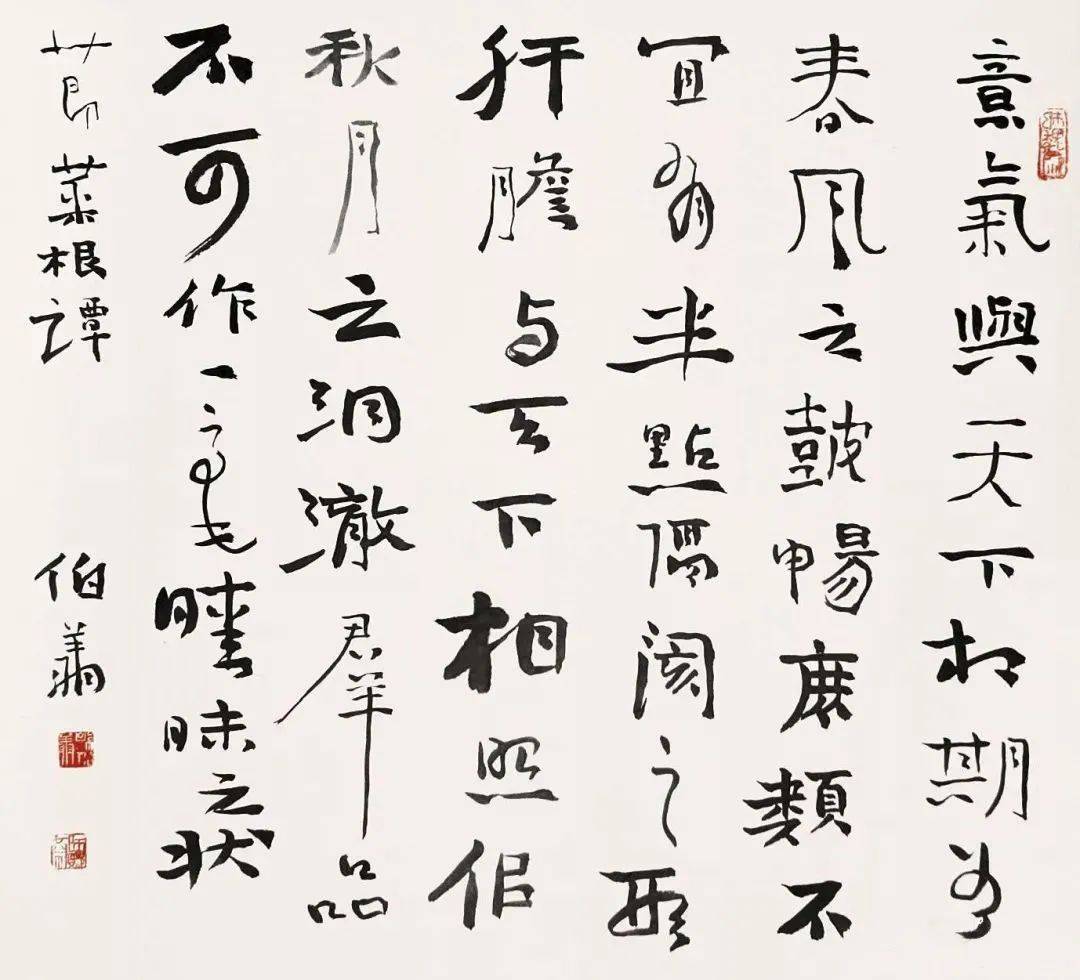 意氣與天下相期
春風之鼓暢庶類不
宜有半點隔閡之形
肝膽与天下相照似
秋月之洞澈羣品
不可作一毫曖昧之状
節菜根譚 伯